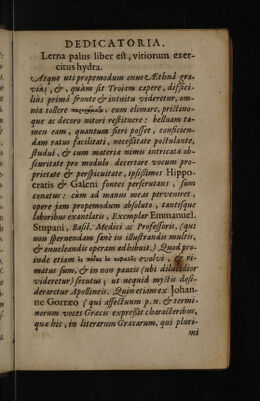 DEDICATORIA.
Lerna palus liber est, vitiorum exer-
citus hydra.
Atque uti propemodum onus Æthnâ gra-
vius, &, quàm sit Troiam capere, diffici-
lius primâ fronte & intuitu videretur, om-
nia tollere eum elimare, pristino-
que ac decoro nitori restituere: bellum ta-
men eam, quantum fieri posset, conficien-
dam ratus facilitati, necessitate postulante,
studui, & cum materia nimis intricata ob-
scuritate pro modulo decertare vocum pro-
prietate & perspicuitate, ipsissimos Hippo-
cratis & Galeni fontes perscrutans, sum
conatus: cùm ad manus meas perveniret,
opere jam propemodum absoluto, tantisque
laboribus exantlatis, Exemplar Emmanuel.
Stupani, Basil. Medici ac Professoris, (qui
non spernendam sanè in illustrandis multis,
& enucleandis operam adhibuit.) Quod pro-
inde etiam evolvi, & ri-
matus sum, & in non paucis (ubi dilucidior
videretur) secutus, ut nequid mystis desi-
deraretur Apollineis. Quin etiam ex Johan-
ne Gorræo (qui affectuum p. n. & termi-
norum voces Græcis expressit characteribus,
quæ hic, in literarum Græcarum, qui pluri-
mi